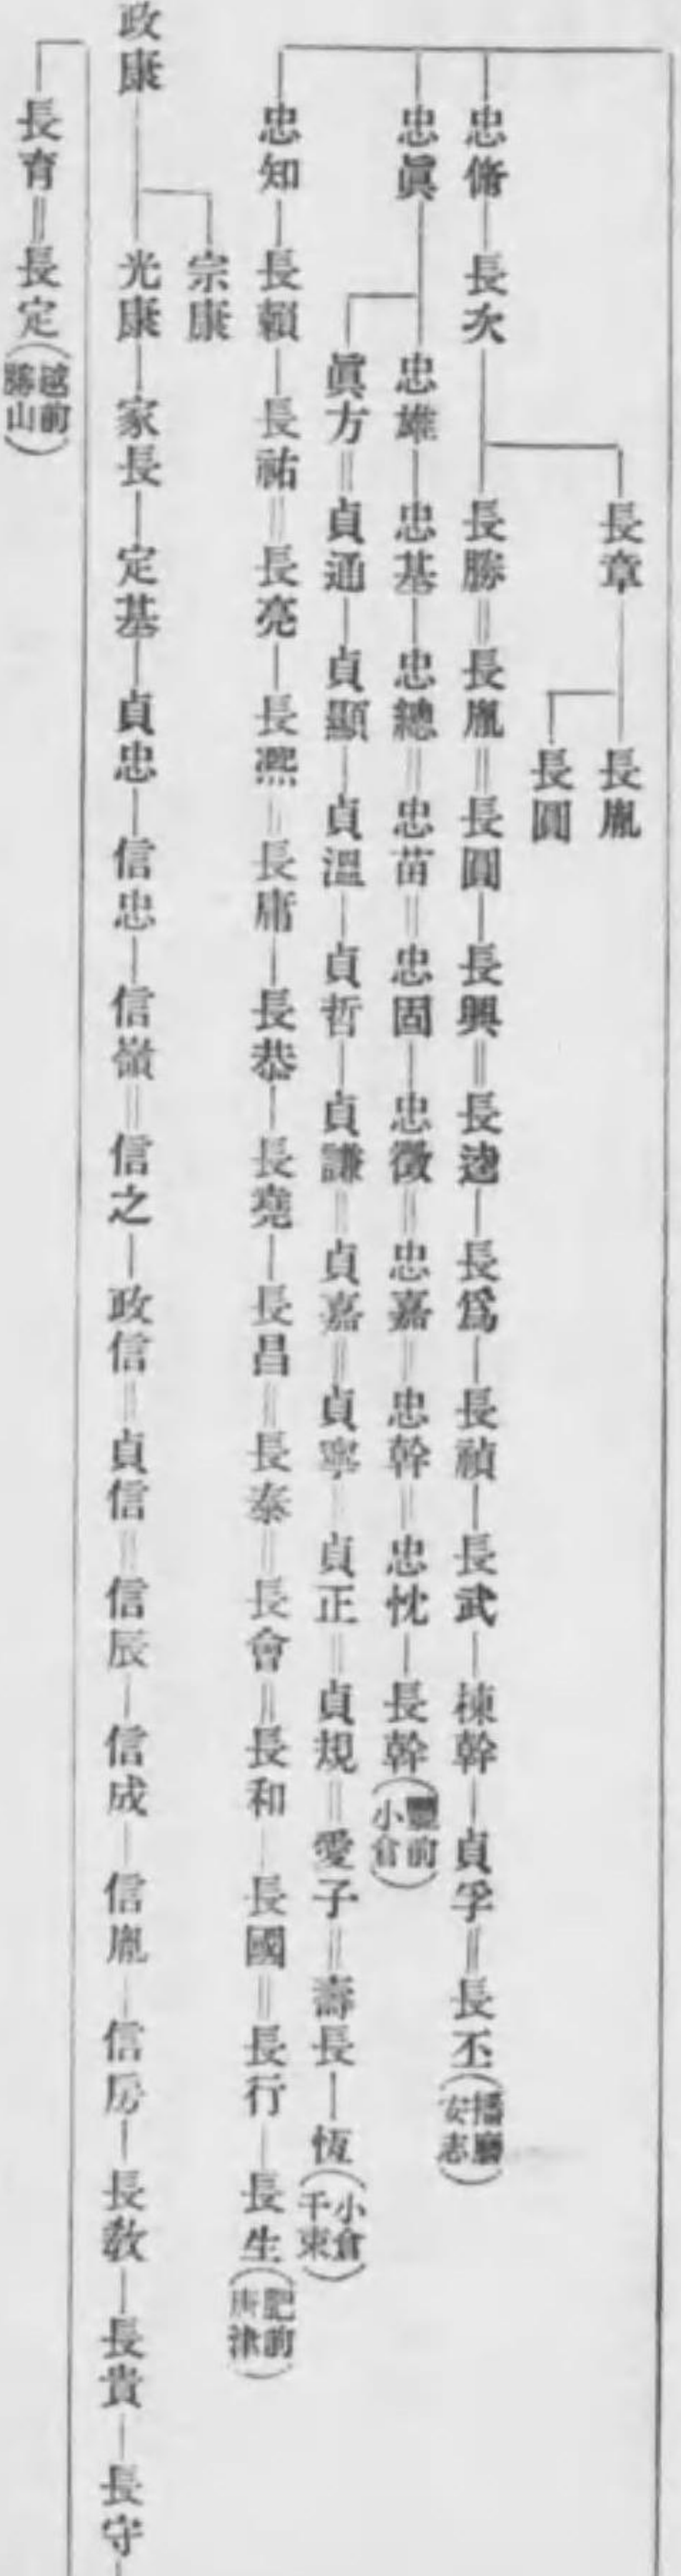 長章
長胤
長圓
忠脩―長次
長勝‖長胤‖長圓―長興‖長逵―長爲―長禎―長武―棟幹―貞孚‖長丕(播磨安志)
忠眞
忠雄―忠基―忠總‖忠苗‖忠固―忠徵‖忠嘉‖忠幹‖忠忱―長幹(豐前小倉)
眞方‖貞通―貞顯―貞溫―貞哲―貞謙‖貞嘉‖貞寧 貞正‖貞規‖愛子‖壽長―恆(小倉千束)
忠知―長賴―長祐‖長亮―長凞‖長庸―長恭―長堯―長昌‖長泰‖長會‖長和―長國‖長行―長生(肥前唐津)
宗康
政康―光康―家長―定基―貞忠―信忠―信嶺‖信之―政信‖貞信‖信辰―信成―信胤―信房―長敎―長貴―長守―
長育‖長定(越前勝山)